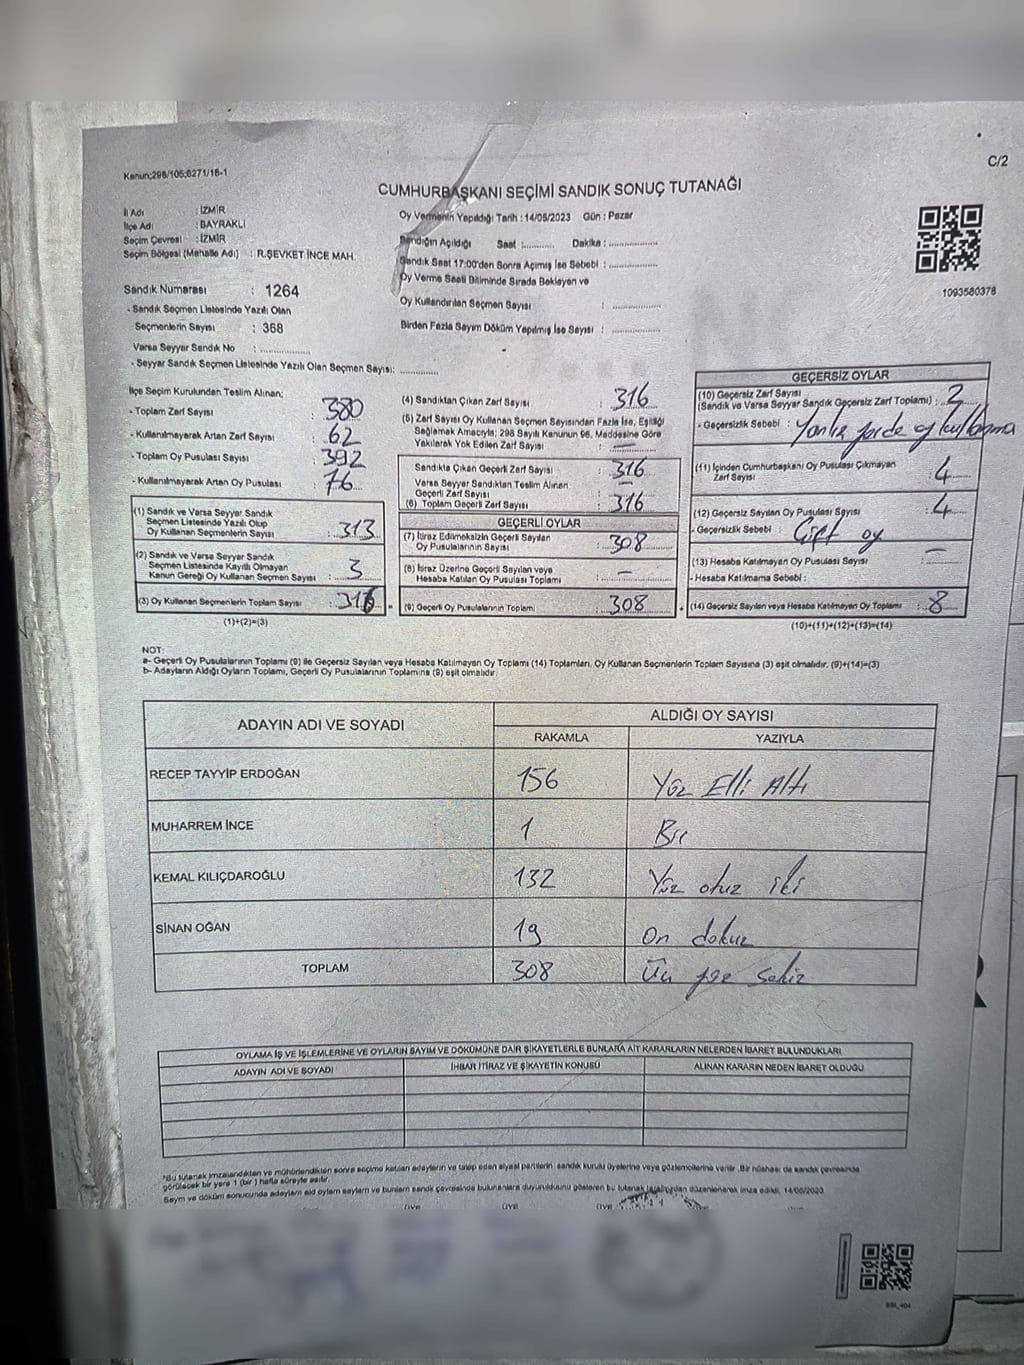 Kanun;298/105;6271/18-1
C/2
CUMHURBAŞKANI SEÇİMİ SANDIK SONUÇ TUTANAĞI
İl Adı : İZMİR
İlçe Adı : BAYRAKLI
Seçim Çevresi : İZMİR
Seçim Bölgesi (Mahalle Adı) : R.ŞEVKET İNCE MAH.
Sandık Numarası : 1264
- Sandık Seçmen Listesinde Yazılı Olan
Seçmenlerin Sayısı : 368
Varsa Seyyar Sandık No : ..............
- Seyyar Sandık Seçmen Listesinde Yazılı Olan Seçmen Sayısı: ............
Oy Vermenin Yapıldığı Tarih : 14/05/2023 Gün : Pazar
Sandığın Açıldığı Saat :.......... Dakika : ...............
Sandık Saat 17:00'den Sonra Açımış İse Sebebi : ...............
Oy Verme Saati Bitiminde Sırada Bekleyen ve
Oy Kullandırılan Seçmen Sayısı : ...............
Birden Fazla Sayım Döküm Yapılmış İse Sayısı : ...............
1093580378
İlçe Seçim Kurulundan Teslim Alınan;
- Toplam Zarf Sayısı : 380
- Kullanılmayarak Artan Zarf Sayısı : 62
- Toplam Oy Pusulası Sayısı : 392
- Kullanılmayarak Artan Oy Pusulası : 76
(1) Sandık ve Varsa Seyyar Sandık
Seçmen Listesinde Yazılı Olup
Oy Kullanan Seçmenlerin Sayısı : 313
(2) Sandık ve Varsa Seyyar Sandık
Seçmen Listesinde Kayıtlı Olmayan
Kanun Gereği Oy Kullanan Seçmen Sayısı : 3
(3) Oy Kullanan Seçmenlerin Toplam Sayısı : 316
(1)+(2)=(3)
(4) Sandıktan Çıkan Zarf Sayısı : 316
(5) Zarf Sayısı Oy Kullanan Seçmen Sayısından Fazla İse, Eşitliği
Sağlamak Amacıyla; 298 Sayılı Kanunun 98. Maddesine Göre
Yakılarak Yok Edilen Zarf Sayısı : —
Sandıkta Çıkan Geçerli Zarf Sayısı : 316
Varsa Seyyar Sandıktan Teslim Alınan
Geçerli Zarf Sayısı : —
(6) Toplam Geçerli Zarf Sayısı : 316
GEÇERLİ OYLAR
(7) İtiraz Edilmeksizin Geçerli Sayılan
Oy Pusulalarının Sayısı : 308
(8) İtiraz Üzerine Geçerli Sayılan veya
Hesaba Katılan Oy Pusulası Toplamı : —
(9) Geçerli Oy Pusulalarının Toplamı : 308
GEÇERSİZ OYLAR
(10) Geçersiz Zarf Sayısı
(Sandık ve Varsa Seyyar Sandık Geçersiz Zarf Toplamı) :
- Geçersizlik Sebebi : Yanlız yerde oy kullanma
(11) İçinden Cumhurbaşkanı Oy Pusulası Çıkmayan
Zarf Sayısı : 4
(12) Geçersiz Sayılan Oy Pusulası Sayısı : 4
- Geçersizlik Sebebi : Çift oy
(13) Hesaba Katılmayan Oy Pusulası Sayısı : —
- Hesaba Katılmama Sebebi :
(14) Geçersiz Sayılan veya Hesaba Katılmayan Oy Toplamı : 8
(10)+(11)+(12)+(13)=(14)
NOT:
a- Geçerli Oy Pusulalarının Toplamı (9) ile Geçersiz Sayılan veya Hesaba Katılmayan Oy Toplamı (14) Toplamları, Oy Kullanan Seçmenlerin Toplam Sayısına (3) eşit olmalıdır. (9)+(14)=(3)
b- Adayların Aldığı Oyların Toplamı, Geçerli Oy Pusulalarının Toplamına (9) eşit olmalıdır.
ADAYIN ADI VE SOYADI ALDIĞI OY SAYISI
RAKAMLA YAZIYLA
RECEP TAYYİP ERDOĞAN 156 Yüz Elli Altı
MUHARREM İNCE 1 Bir
KEMAL KILIÇDAROĞLU 132 Yüz otuz iki
SİNAN OĞAN 19 On dokuz
TOPLAM 308 Üç yüz sekiz
OYLAMA İŞ VE İŞLEMLERİNE VE OYLARIN SAYIM VE DÖKÜMÜNE DAİR ŞİKAYETLERLE BUNLARA AİT KARARLARIN NELERDEN İBARET BULUNDUKLARI
ADAYIN ADI VE SOYADI İHBAR İTİRAZ VE ŞİKAYETİN KONUSU ALINAN KARARIN NEDEN İBARET OLDUĞU
*Bu tutanak imzalandıktan ve mühürlendikten sonra seçime katılan adayların ve talep eden siyasi partilerin sandık kurulu üyelerine veya gözlemcilerine verilir. Bir nüshası da sandık çevresinde
görülecek bir yere 1 (bir) hafta süreyle asılır.
Sayım ve döküm sonucunda adayların aldığı oyların sayıları ve bunların sandık çevresinde bulunanlara duyurulduğunu gösteren bu tutanak tarafımızdan düzenlenerek imza edildi. 14/05/2023
ÜYE ÜYE ÜYE